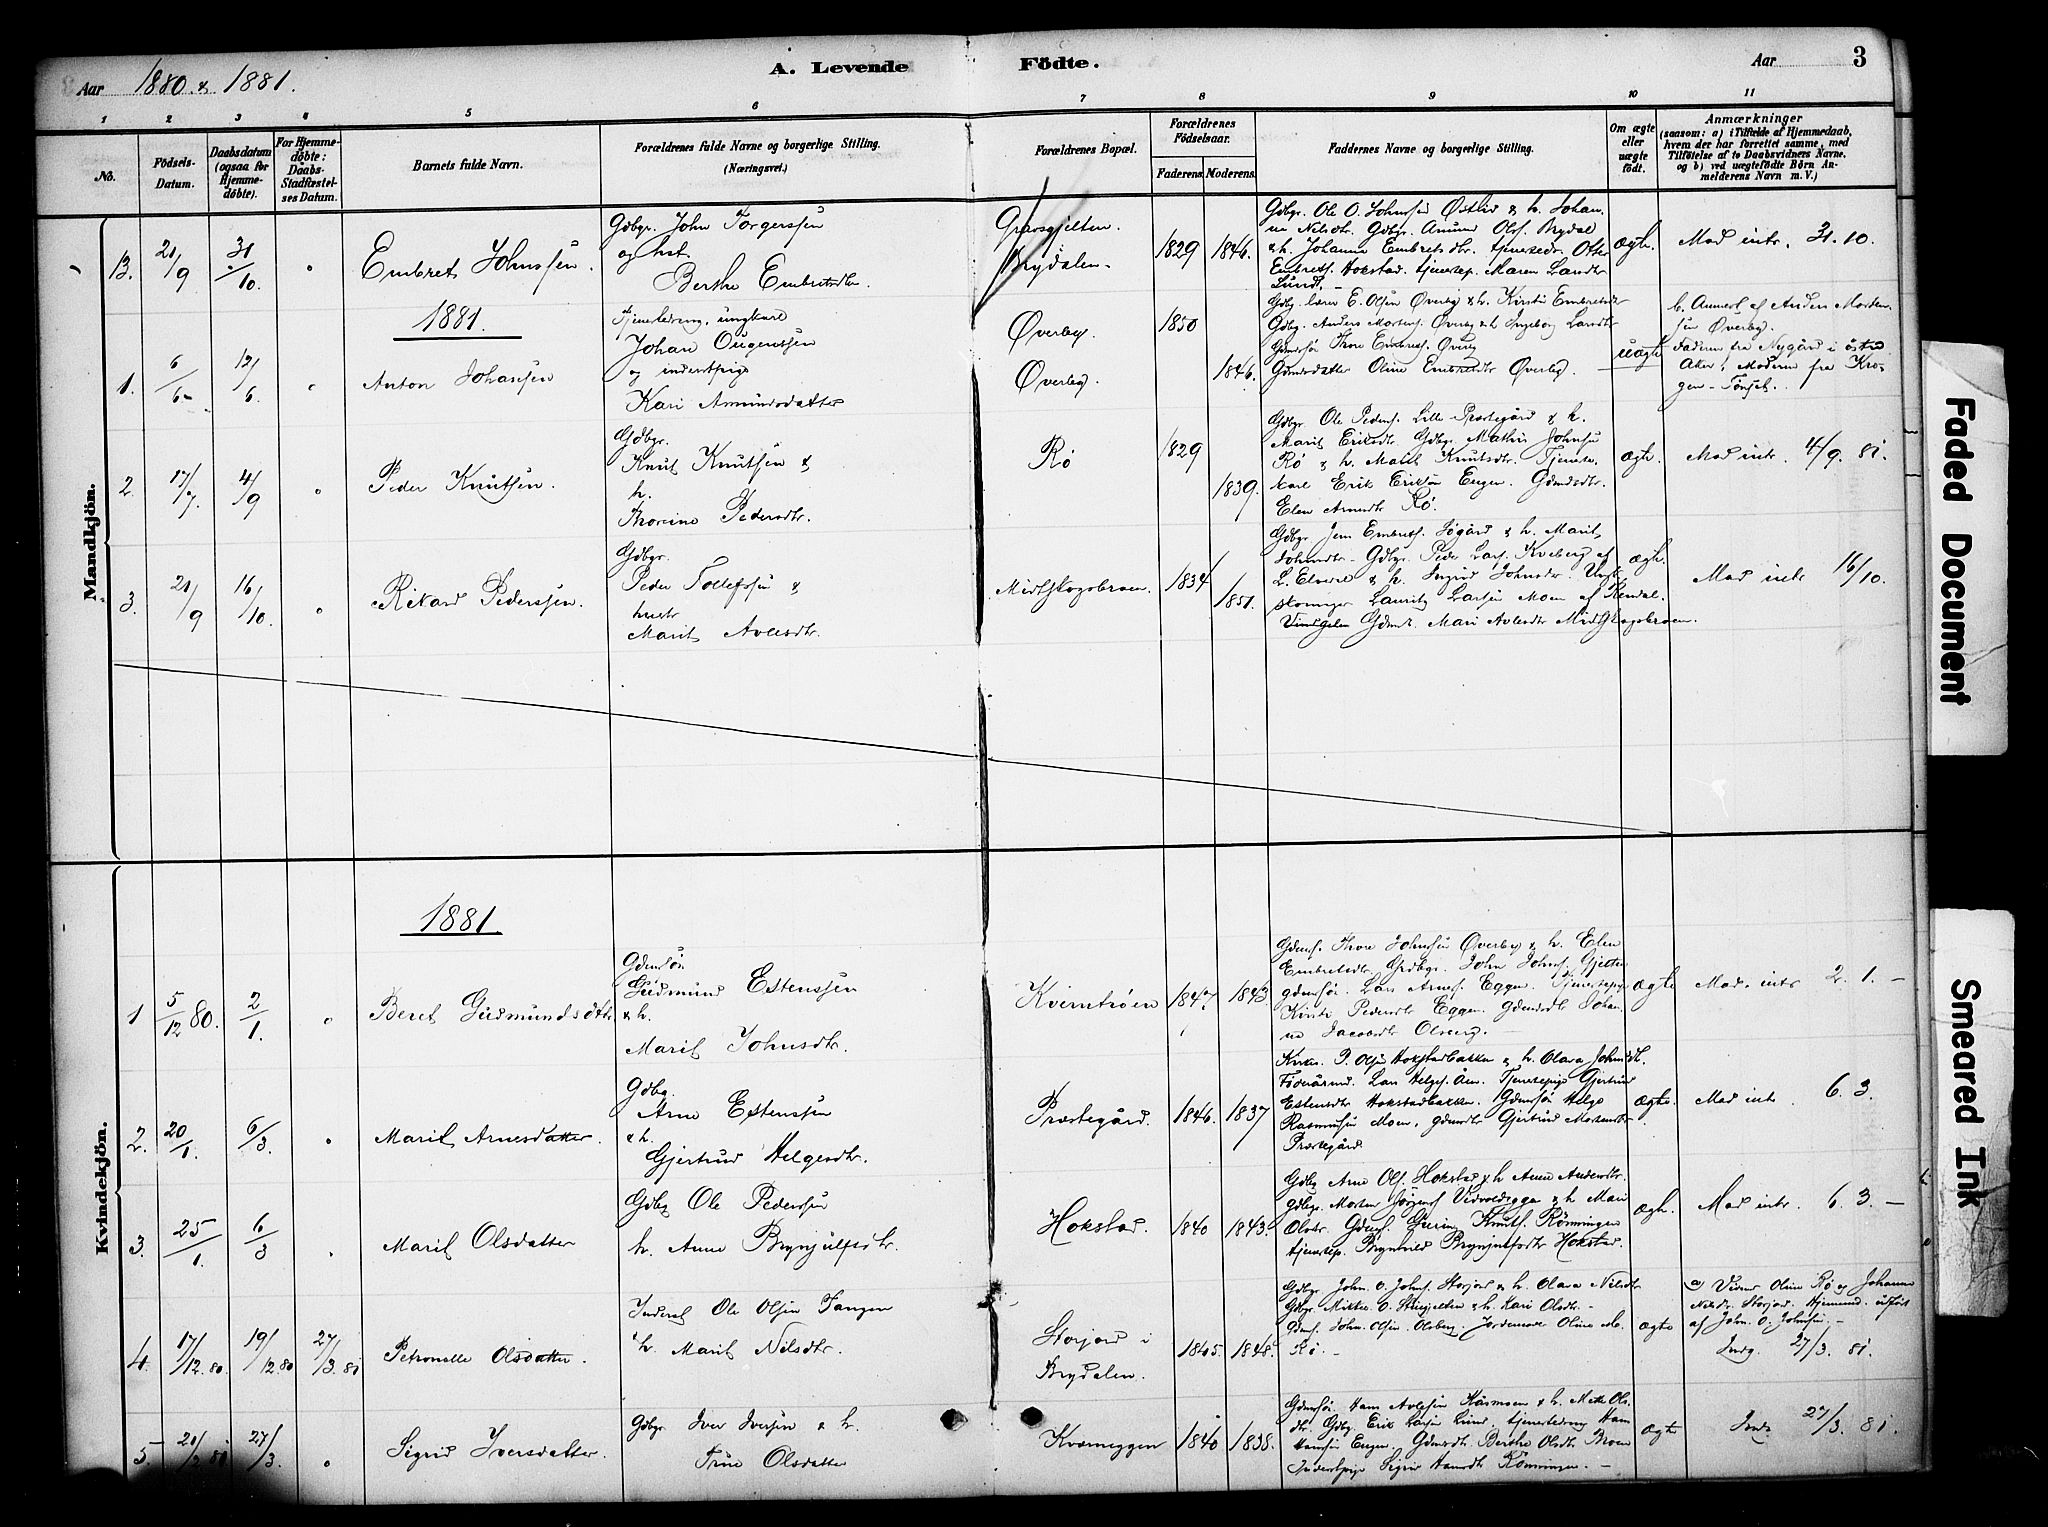 Aar 1880 & 1881. A. Levende Födte. Aar 3
1 2 3 4 5 6 7 8 9 10 11
No.
Födsels-Datum.
Daabsdatum (ogsaa for Hjemmedöbte).
For Hjemmedöbte: Daabs-Stadfæstelses Datum.
Barnets fulde Navn.
Forældrenes fulde Navne og borgerlige Stilling. (Næringsvei.)
Forældrenes Bopæl.
Forældrenes Födselsaar.
Faderens. Moderens.
Faddernes Navne og borgerlige Stilling.
Om ægte eller uægte födt.
Anmærkninger
(saasom: a) i Tilfælde af Hjemmedaab,
hvem der har forrettet samme, med
Tilföielse af to Daabsvidners Navne,
og b) ved uægtefödte Börn Anmelderens Navn m. V.)
Mandkjön.
13. 21/9 31/10. Embret Johnssen.
Gdbgr. John Torgerssen
og hst.
Berthe Embretsdtr.
Græsgjelten.
Brydalen
1829 1846.
Gdbgr. Ole O. Johnsen Østlid & h. Johan
ne Nilsdtr. Gdbgr. Amund Olss. Brydal
& h. Johanne Embretsdtr. tjenestedr. Otter
Embrets. Hokstad. tjenestep. Maren Larsdtr
Lund.
ægte. Mod intr. 31. 10.
1881.
1. 6/6 12/6. Anton Johansen
Tjenestedreng, ungkarl
Johan
og inderstpige
Kari Amundsdatter
Øverby.
Øverby.
1850
1846.
Gdbg. lærer E. Olsen Øverby & h. Kirsti Embretsdtr
Gdbg. Anders Mortens. Øverby & h. Ingeborg Larsdtr
Gdmdsøn Thore Embrets. Øverby
Gdmdsdatter Oline Embretsdtr Øverby.
uægte
b. Anmeld af Anders Morten
sen Øverby.
Faderen fra Nygård i østre
Aker, Moderen fra Kro-
gen - Tönset.
2. 17/7. 4/9 Peder Knutsen.
Gdbgr.
Knut Knutsen &
h.
Thorine Pedersdtr.
Rö
1829
1839.
Gdbgr Ole Peders. Lille-Præstegård & h.
Marit Eriksdtr. Gdbgr. Mathis Johnsen
Rö & h. Malit Knutsdtr. Tjeneste-
karl Erik Eriksen Eugen. Gdmdsdtr.
Elen Arnesdtr Rö.
ægte. Mod intr. 4/9. 81.
3. 21/9 16/10. Rikard Pederssen.
Gdbgr.
Peder Tollefssen &
hustr
Marit Avlesdtr.
Midtskogsbroen.
1834
1851.
Gdbgr Jens Embrets. Sögård & h. Marit
Johnsdtr. Gdbgr. Peder Lars. Kveberg af
L. Elvedal & h. Ingrid Johnsdtr. Ungk.
skomager Lauritz Larsen Moen af Rendal.
Vingelen Gdmdt. Mari Avlesdtr Midtskogsbroen.
ægte. Mod intr 16/10.
Kvindekjön.
1881.
1 5/12 80. 2/1. Beret Gudmundsdtr
Gdmdsön
Gudmund Estenssen
& h.
Marit Johnsdtr.
Kverntröen 1847 1843.
Gdmds. Thore Johnssen Øverby & h. Elen
Embretsdtr. Grdbgr. John Johns. Gjelten
gdmdsøn. Lars Arnes. Eggen. Tjenestepige
Kirsti Pedersdtr Eggen. Gdmdsdtr Johan
ne Jacobsdtr Olsberg.
ægte Mod. intr 2. 1. -
2. 20/1. 6/3. Marit Arnesdatter.
Gdbg.
Arne Estenssen
& h.
Gjertrud Helgesdtr.
Præstegård. 1846. 1837
Kirkes. P. Olsen Hokstadbakken & h. Olara Johnsdtr.
Föderåmd. Lars Helges. Åen. Tjenestepige Gjertrud
Estensdtr Hokstadbakken. Gdmdsøn Helge
Rasmussen Moen. gdmdtr Gjertrud Mortensdtr
Præstegård
ægte. Mod intr. 6. 3.
3. 25/1. 6/3 Marit Olsdatter
Gdbg Ole Pederssen
h. Anne Brynjulfsdtr.
Hokstad. 1840 1843.
Gdbg Arne Ols. Hokstad & h Anne Andersdtr.
gdbgr. Morten Jögens. Vidvoldeggen & h Mari
Olsdtr. Gdmds. Knuts. Rönningen
tjenestep. Brynhild Brynjulfsdtr Hokstad.
ægte. Mod intr. 6. 3. -
4. 17/12.80. 19/12.80 27/3 81 Petronelle Olsdatter.
Inderst Ole Olsen Tangen
& h. Marit Nilsdtr.
Storjord i
Brydalen.
1845. 1848.
Gdbgr John. O. Johns. Storjord & h. Olara Nilsdtr
Gdbgr. Mikkel O. Steigjelten & h. Kari Olsdtr. -
Gdmds. John Olsen Olsberg. Jordemoder Oline M.
Rö. -
ægte
a) Vidner Oline Rö og Johanne
Nilsdtr. Storjord. Hjemmed. udført
af John. O. Johnsen. -
Indg. 27/3. 81.
5 20/2 81 27/3. Sigrid Iversdatter.
Gdbgr Iver Iversen & h.
Trine Olsdatter
Kværneggen 1840 1838.
Gdmdsøn. Hans Avlesen Råsmoen & h. Mette Ols
dtr. Gdbg. Erik Larsen Lund. tjenestedreng Hans
Hansen Eugen. Gdmdsdtr. Berthe Olsdtr Broen
Inderstpige Sigrid Hansdtr Rönningen. -
ægte Indg 27/3. 81.
Faded Document
Smeared Ink